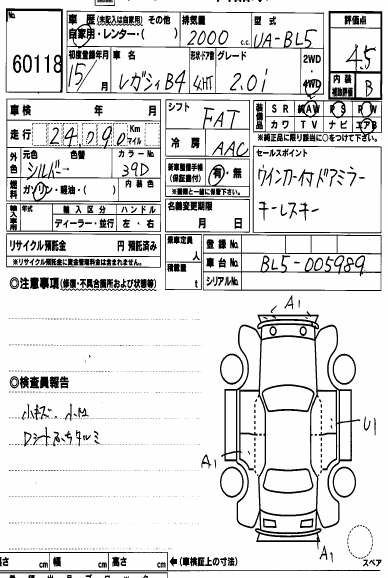 No.
60118
車歴 (未記入は自家用) その他
自家用・レンター・( )
排気量
2000 c.c.
型式
UA-BL5
評価点
4.5
初度登録年月
15年 月
車名
レガシィB4
形状・ドア数
4HT
グレード
2.0i
2WD
4WD
内装
補助評価
B
車検 年 月
走行 24,090 Km マイル
シフト
FAT
冷房
AAC
装備品
SR AW PS PW
カワ TV ナビ エアB
※純正品に限り該当に○をつけて下さい。
外色
元色 色替 カラーNo.
シルバー → 39D
燃料
ガソリン・軽油・( )
内装色
新車整備手帳
(保証書付)
有・無
※書類と一緒に保管下さい。
セールスポイント
ウインカー付ドアミラー
キーレスキー
輸入車用
年式 輸入区分 ハンドル
ディーラー・並行 左・右
名義変更期限
月 日
リサイクル預託金 円 預託済み
※リサイクル預託金に資金管理料金は含まれません。
乗車定員 人
積載量 t
登録No.
車台No. BL5-005989
シリアルNo.
◎注意事項 (修復・不具合箇所および状態等)
◎検査員報告
小キズ、小凹
A1
U1
A1
A1
スペア
長さ cm 幅 cm 高さ cm ←(車検証上の寸法)